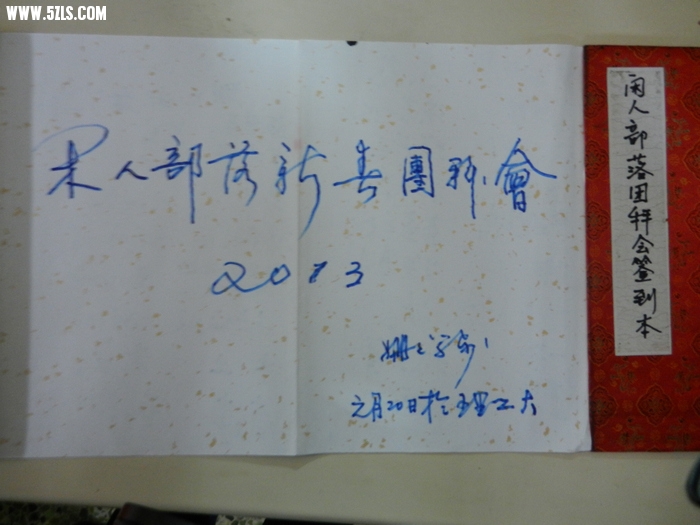 WWW.5ZLS.COM
闲人部落新春團拜會
2013
元月20日於理工大
闲人部落团拜会签到本